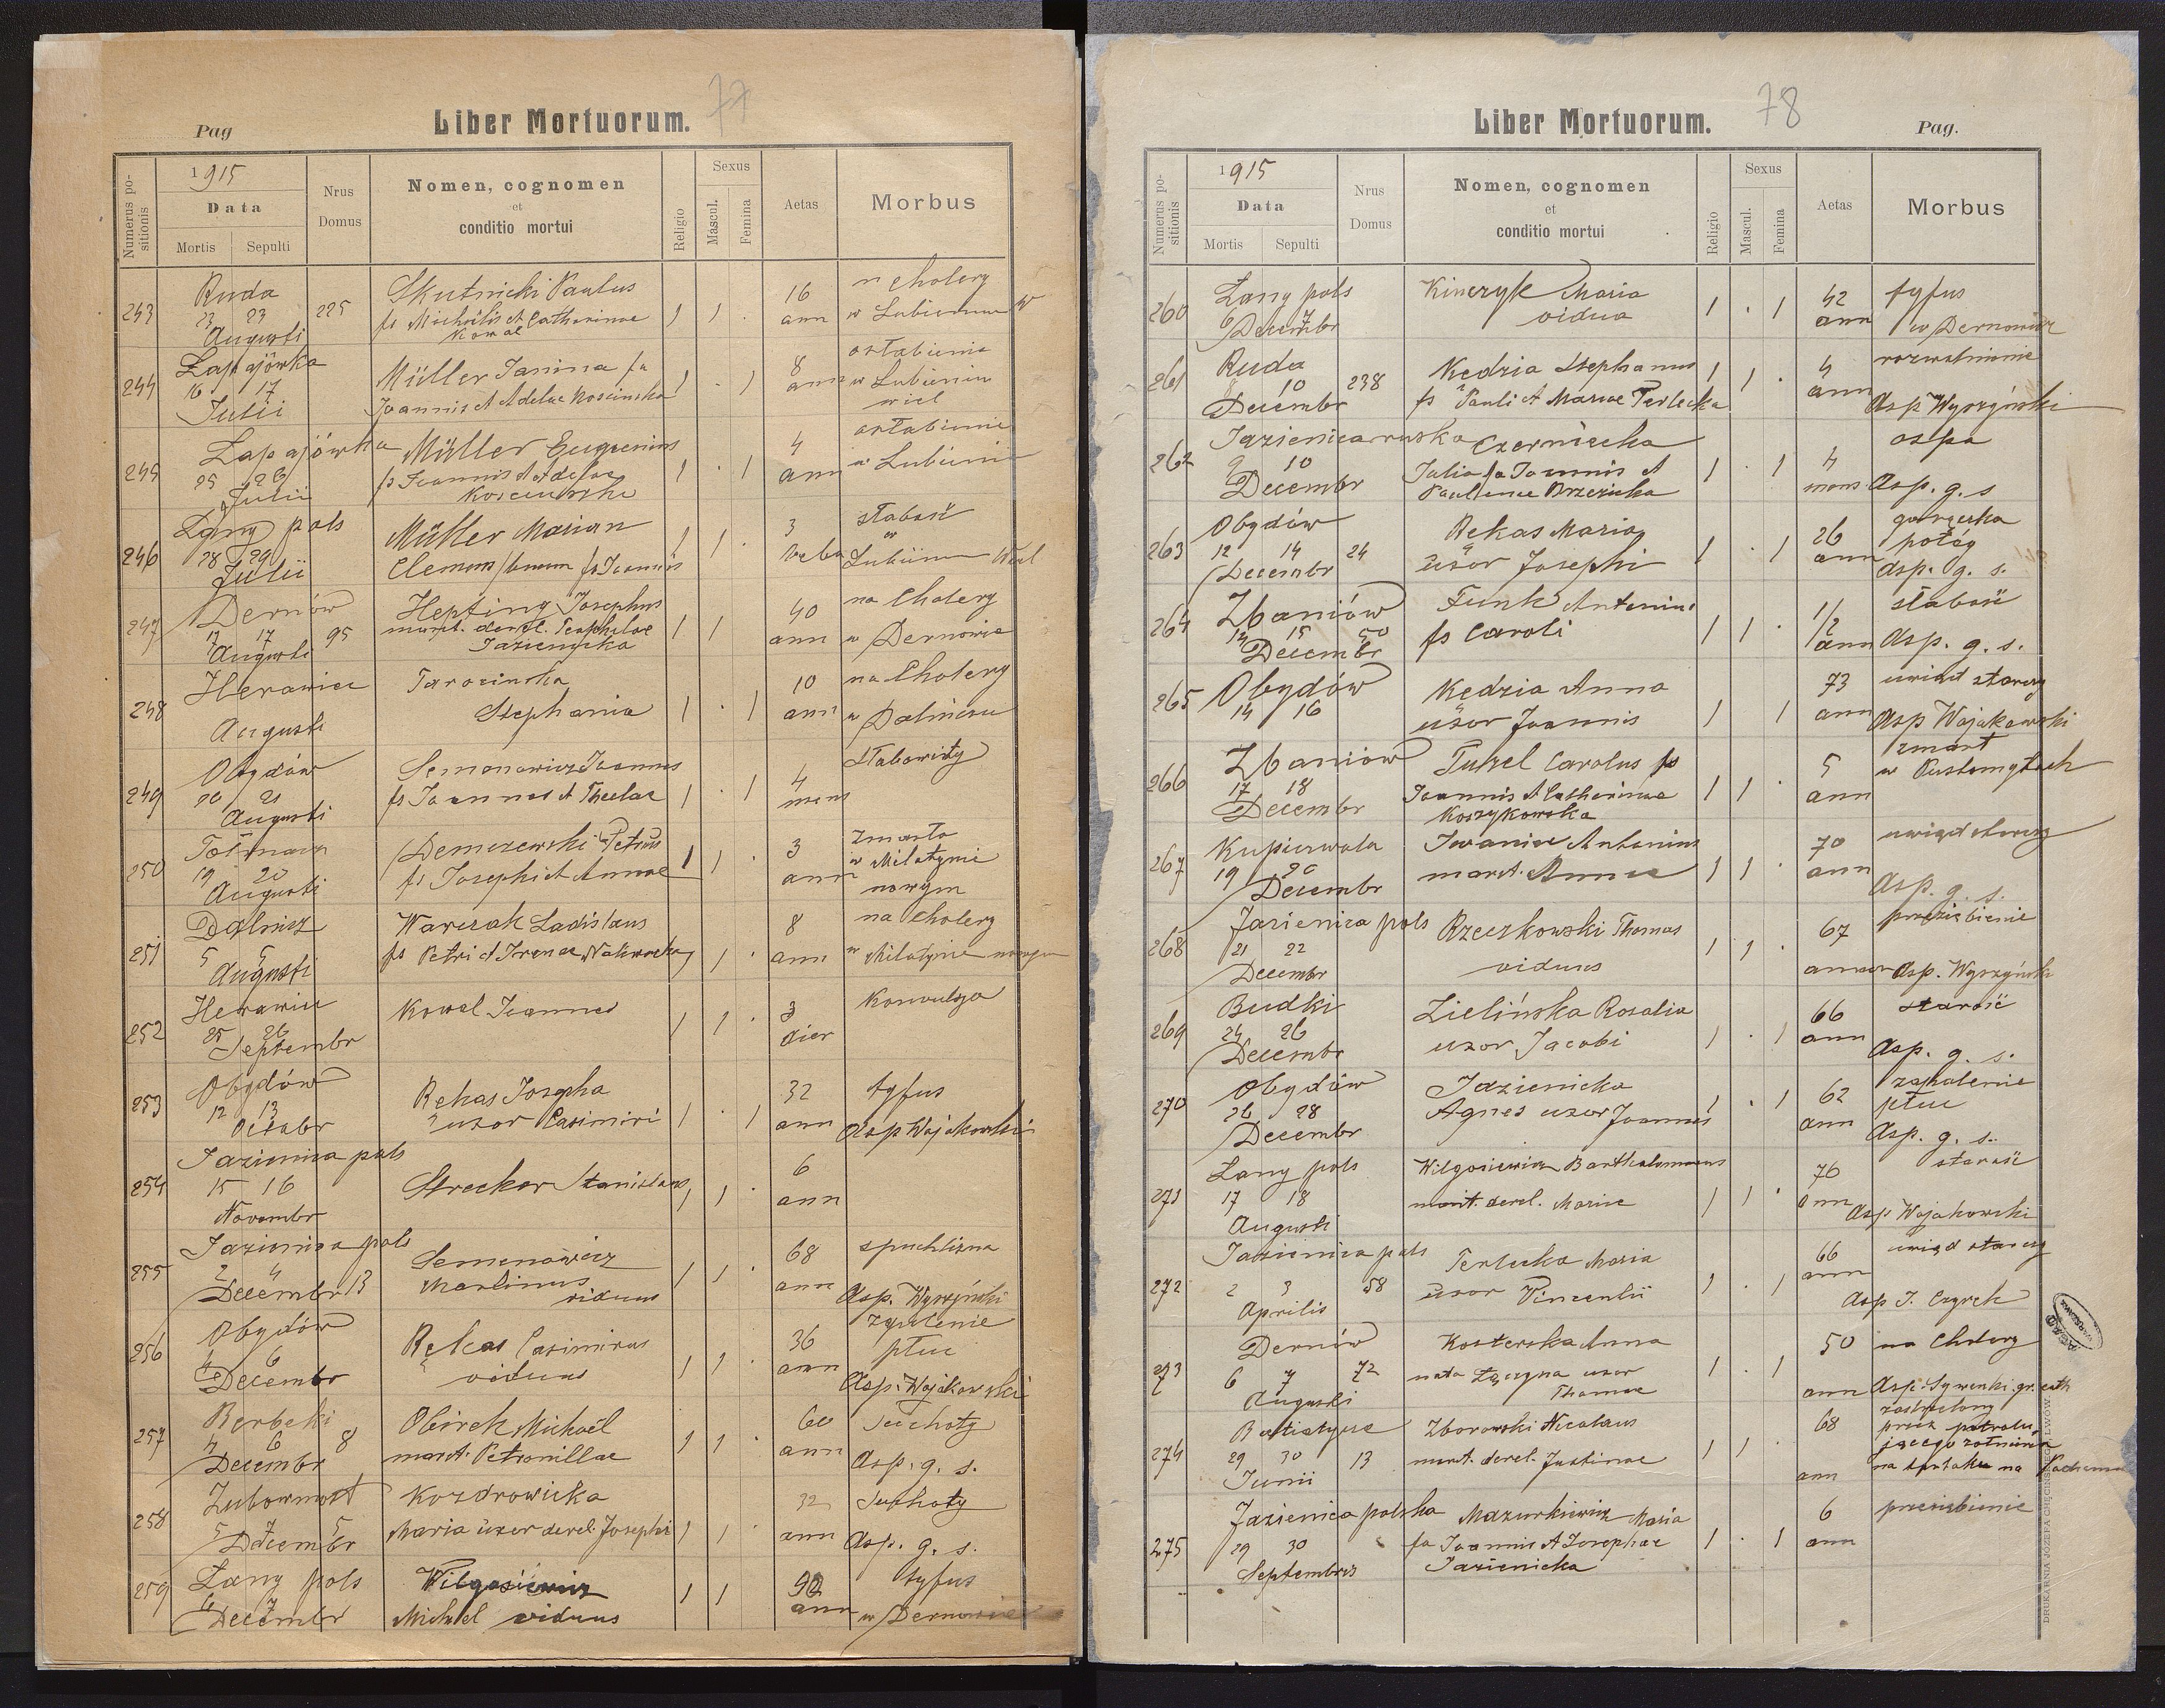 77
Pag
Liber Mortuorum.
Numerus positionis
1915
Data
Mortis
Sepulti
Nrus
Domus
Nomen, cognomen
et
conditio mortui
Religio
Sexus
Mascul.
Femina
Aetas
Morbus
243 Ruda 23 23 Augusti 225 Skutnicki Paulus
fs Michaelis et Catharinae
Kowal
1 1 . 16 ann n cholerę
w Lubieniu W
244 Łapajówka 16 17 Julii Müller Janina fa
Joannis et Adelae
1 . 1 8 ann osłabienie
w Lubieniu
wiel
245 Łapajówka 25 26 Julii Müller Eugenius
fs Joannis et Adelae
1 . 1 4 ann osłabienie
w Lubieniu
246 Łany pols 28 29 Julii Müller Marian
Clemens fs Joannis
1 1 . 3 słabość
w
Lubieniu Wiel
247 Dernów 17 17 Augusti 95 Hepting Josephus
marit. derel. Teophilae
Jazienicka
1 1 40 ann na Cholerę
w Dernowie
248 Herawiec Augusti
Stephania
1 . 1 10 ann na Cholerę
w Dalniczu
249 Obydów 20 21 Augusti Semenowicz Joannes
fs Joannes et Theclae
1 . 1 4 mens słabowity
250 19 20 Augusti Demczewski Petrus
fs Josephi et Annae
1 1 . 3 ann zmarło
w Milatynie
nowym
251 Dalnicz 5 5 Augusti Warczak Ladislaus
fs Petri et Irenae
1 . 8 ann na cholerę
w Milatynie nowym
252 Herawiec 25 26 Septembr Kowal Joannes
1 1 . 3 dier Konwulsya
253 Obydów 12 13 Octobr Rękas Josepha
uxor Casimiri
1 . 1 32 ann tyfus
Asp Wojakowski
254 Jazienica pols 15 16 Novembr Strecker Stanislaus
1 1 . 6 ann
255 Jazienica pols 2 4 Decembr 13 Semenowicz
Martinus
viduus
1 1 . 68 ann spuchlizna
Asp. Wyrzyński
256 Obydów 4 6 Decembr Rękas Casimirus
viduus
1 1 . 36 ann zapalenie
płuc
Asp. Wojakowski
257 Berbeki 4 6 8 Decembr Obirek Michaël
marit. Petronillae
1 1 . 60 ann Suchoty
Asp. g. s.
258 5 7 5 Decembr Kozdrowicka
Maria uxor derel. Josephi
1 1 . 32 ann Suchoty
Asp. g. s.
259 Łany pols 6 7 Decembr Wilgosiewicz
Michael viduus
1 1 42 ann tyfus
w Dernowie
78
Liber Mortuorum.
Pag.
Numerus positionis
1915
Data
Mortis
Sepulti
Nrus
Domus
Nomen, cognomen
et
conditio mortui
Religio
Sexus
Mascul.
Femina
Aetas
Morbus
260 Łany pols 6 7 Decembr Kinczyk Maria
vidua
1 . 1 42 ann tyfus
w Dernowie
261 Ruda 8 10 Decembr 238 Kędzia Stephanus
fs Pauli et Mariae Terlecka
1 1 . 4 ann rozwolnienie
Asp Wyrzyński
262 Jazienica ruska 9 10 Decembr Czerniecka
Julia fa Joannis et
Paulinae Brzezicka
1 . 1 4 mens ospa
Asp. g. s
263 Obydów 12 14 Decembr 24 Rękas Maria
uxor Josephi
1 . 1 26 ann gorączka
połóg
Asp. g. s.
264 Zbaniów 14 15 Decembr 50 Funk Antonius
fs Caroli
1 1 . 1/2 ann słabość
Asp. g. s.
265 Obydów 14 16 Kędzia Anna
uxor Joannis
1 1 73 ann uwiąd starczy
Asp Wojakowski
266 Zbaniów 17 18 Decembr Carolus fs
Joannis et Catharinae
Koszykowska
1 1 . 5 ann zmart
w Pustomytach
267 Kupiczwola 19 20 Decembr Iwaniec Antonius
marit. Annae
1 1 . 70 ann uwiąd starczy
Asp. g. s.
268 Jazienica pols 21 22 Decembr Rzeczkowski Thomas
viduus
1 1 . 67 przeziębienie
Asp. Wyrzyński
269 Budki 24 26 Decembr Zielińska Rosalia
uxor Jacobi
1 . 1 66 ann starość
Asp. g. s.
270 Obydów 26 28 Decembr Jazienicka
Agnes uxor Joannis
1 . 1 62 ann zapalenie
płuc
Asp. g. s.
271 Łany pols 17 18 Augusti Wilgosiewicz Bartholomaeus
marit. derel. Mariae
1 1 . 76 ann starość
Asp Wojakowski
272 Jazienica pols 2 3 Aprilis 58 Terlecka Maria
uxor Vincentii
1 . 1 66 ann uwiąd starczy
Asp J. Czyrek
273 Dernów 6 7 Augusti 72 Kosterska Anna
nata uxor
Thomae
1 . 1 50 ann na Cholerę
Asp. gr. cath
274 Batiatycze 29 30 Junii 13 Zborowski Nicolaus
marit. derel. Justinae
1 1 . 68 ann zastrzelony
przez patrolu-
jącego żołnierza
na tartaku na
275 Jazienica polska 29 30 Septembris Mazurkiewicz Maria
fa Joannis et Josephae
Jazienicka
1 . 1 6 ann przeziębienie
DRUKARNIA JÓZEFA CHĘCIŃSKIEGO LWÓW.